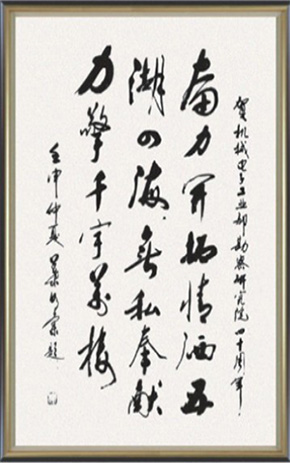 贺机械电子工业部勘察研究院四十周年
奋力开拓情洒五
湖四海无私奉献
力擎千宇万楼
壬申仲夏
题